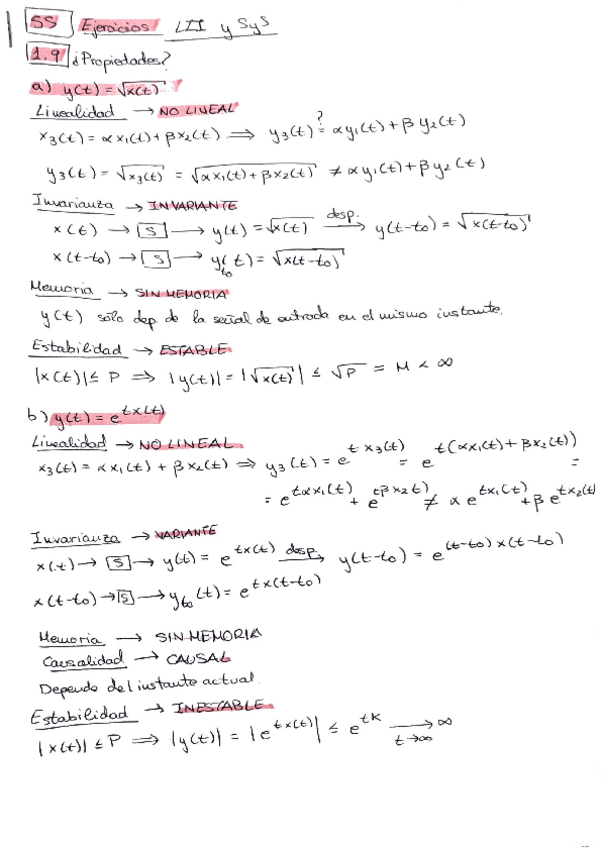 SS Ejercicios LTI y SyS
1.9 ¿Propiedades?
a) y(t) = √x(t)
Linealidad → NO LINEAL
x₃(t) = αx₁(t) + βx₂(t) ⟹ y₃(t) ≟ αy₁(t) + βy₂(t)
y₃(t) = √x₃(t) = √αx₁(t) + βx₂(t) ≠ αy₁(t) + βy₂(t)
Invarianza → INVARIANTE
x(t) → [S] → y(t) = √x(t) desp.→ y(t-t₀) = √x(t-t₀)
x(t-t₀) → [S] → y_t₀(t) = √x(t-t₀)
Memoria → SIN MEMORIA
y(t) sólo dep. de la señal de entrada en el mismo instante.
Estabilidad → ESTABLE
|x(t)| ≤ P ⟹ |y(t)| = |√x(t)| ≤ √P = M < ∞
b) y(t) = e^{tx(t)}
Linealidad → NO LINEAL
x₃(t) = αx₁(t) + βx₂(t) ⟹ y₃(t) = e^{t x₃(t)} = e^{t(αx₁(t) + βx₂(t))} =
= e^{tαx₁(t)} + e^{tβx₂t)} ≠ αe^{tx₁(t)} + βe^{tx₂(t)}
Invarianza → VARIANTE
x(t) → [S] → y(t) = e^{tx(t)} desp.→ y(t-t₀) = e^{(t-t₀)x(t-t₀)}
x(t-t₀) → [S] → y_t₀(t) = e^{tx(t-t₀)}
Memoria → SIN MEMORIA
Causalidad → CAUSAL
Depende del instante actual.
Estabilidad → INESTABLE
|x(t)| ≤ P ⟹ |y(t)| = |e^{tx(t)}| ≤ e^{tK} →_{t→∞} ∞